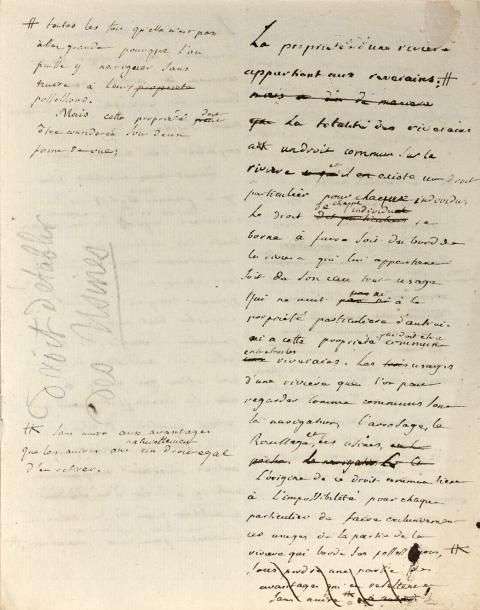 # toutes les fois qu'elle n'est pas
assez grande pour que l'on
puisse y naviguer sans
nuire à leurs propriétés
Mais cette propriété doit
être considérée sous deux
Droit d'établir
des Usines
# sans nuire aux avantages
naturellement
que les autres ont un droit égal
d'en retirer.
La propriété d'une rivière
appartient aux riverains; #
mais de manière
que la totalité des riverains
ait un droit commun sur la
rivière et il existe un droit
particulier pour chaque individu.
de chaque individu
Le droit des particuliers se
borne à faire soit du bord de
la rivière qui lui appartient
soit de son eau tout usage
qui ne nuit pas ni à la
propriété particulière d'autrui
ni à cette propriété commune
riveraines. Les usages
d'une rivière que l'on peut
regarder comme communs sont
la navigation, l'arrosage, le
flottage et les usines,
L'origine de ce droit commun tient
à l'impossibilité pour chaque
particulier de faire exclusivement
ces usages de la partie de la
rivière qui borde son #
sans perdre une partie des
avantages qui en
sans nuire #